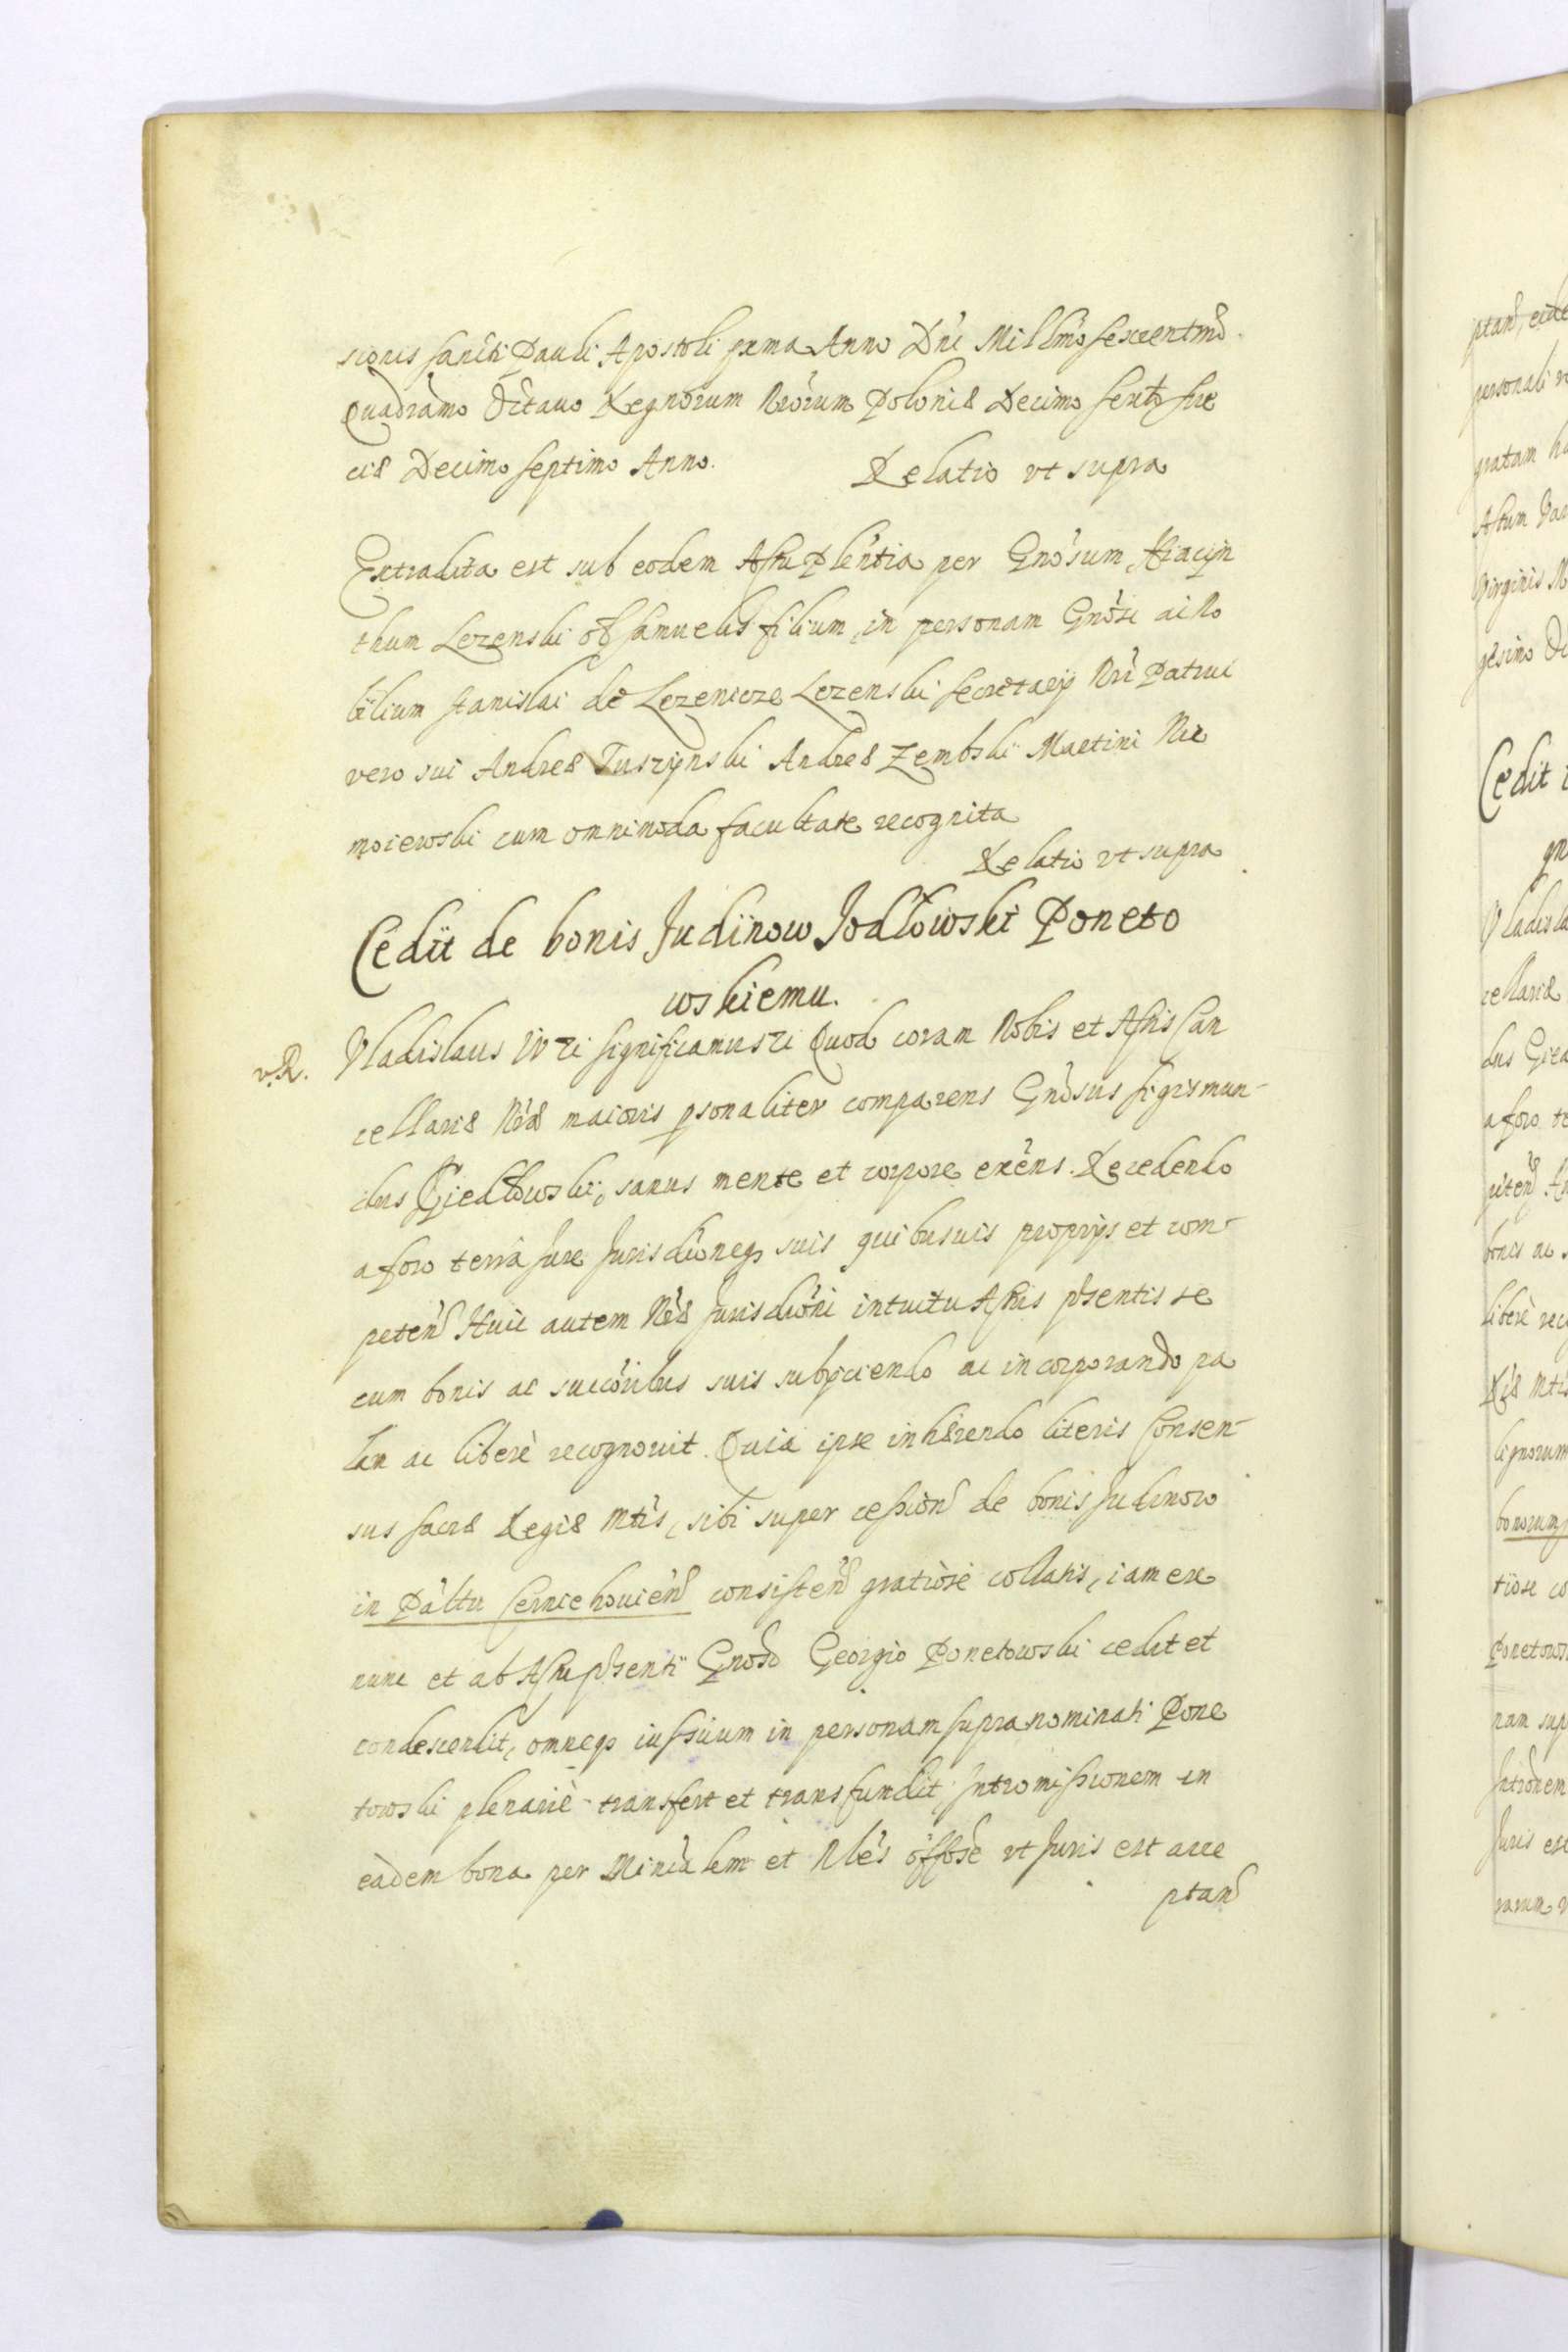 sionis sancti Pauli Apostoli prma Anno Dni Millmo sexcentmo
Quadrãmo Octauo Regnorum Nrõrum Poloniæ Decimo sexto Sue
ciæ Decimo septimo Anno. Relatio vt supra
Extradita est sub eodem Actu Plentia per Gnosum Hiacyn
thum Lezenski olim Samuelis filium, in personam Gnosi ac No
bilium Stanislai de Lezenicze Lezenski Secretarij Nri Patrui
vero sui Andreæ Tuszynski Andreæ Zembski Martini Nie
moiewski cum omnimoda facultate recognita
Relatio vt supra
Cedit de bonis Judinow Jodłowski Poneto
wskiemu.
v.R. Vladislaus IV etc Significamus etc Quod coram Nobis et Actis Can
cellariæ Nræ maioris psonaliter comparens Gnosus Sigismun-
dus Giedłowski, sanus mente et corpore exẽns. Recedendo
a foro terra Jure Jurisdioneq suis quibusuis proprijs et com-
peten Huic autem Nræ Jurisdioni intuitu Actus psentis se
cum bonis ac succoribus suis subijciendo ac incorporando pa
lan ac liberè recognouit. Quia ipse inhærendo literis Consen-
sus Sacræ Regiæ Mtis, sibi super cession de bonis Judinow
in Paltu Czernichouien consisten gratiose collatis, iam ex
nunc et ab Actu psenti Gnoso Georgio Ponetowski cedit et
condescendit, omneq ius suum in personam supranominati Pone
towski plenariè transfert et transfundit, Intromissionem in
eadem bona per Minialem et Nles õffose vt Juris est acce
ptan